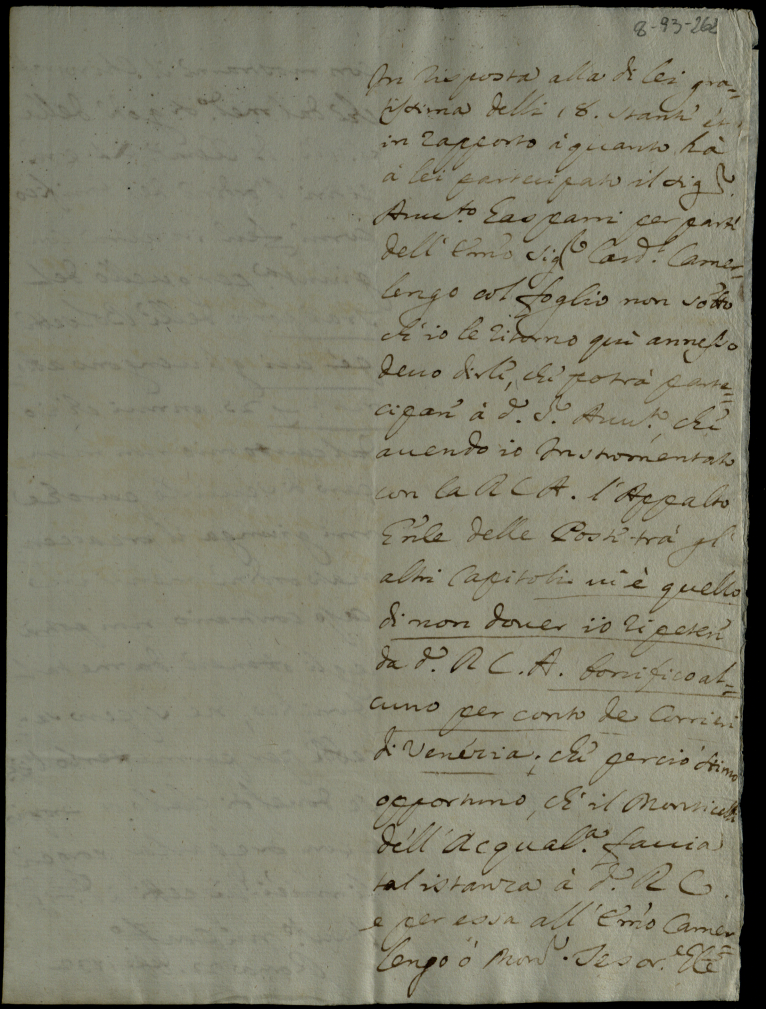 8-93-262
In risposta alla di lei gra-
tissima delli 18. stante
in rapporto à quanto hà
à lei partecipato il Sig.r
Avv.to Gasparri per parte
dell' Emo Sig.r Card.l Camer-
lengo col foglio non sotto
che io le ritorno quì annesso
devo dirle, che potrà parte=
cipare à d.o S.r Avv.to che
avendo io Instromentato
con la R C A. l'Appalto
Gnle delle Poste trà gl'
altri Capitoli vi è quello
di non dover io ripetere
da d.a R C. A. bonifico al=
cuno per conto de Corrieri
di Venezia; che perciò stimo
opportuno, che il Monticelli
dell' Acqual.a faccia
tal istanza à d.a R C.
e per essa all' Emo Camer=
lengo ò Mons.r Tesor.e Gle